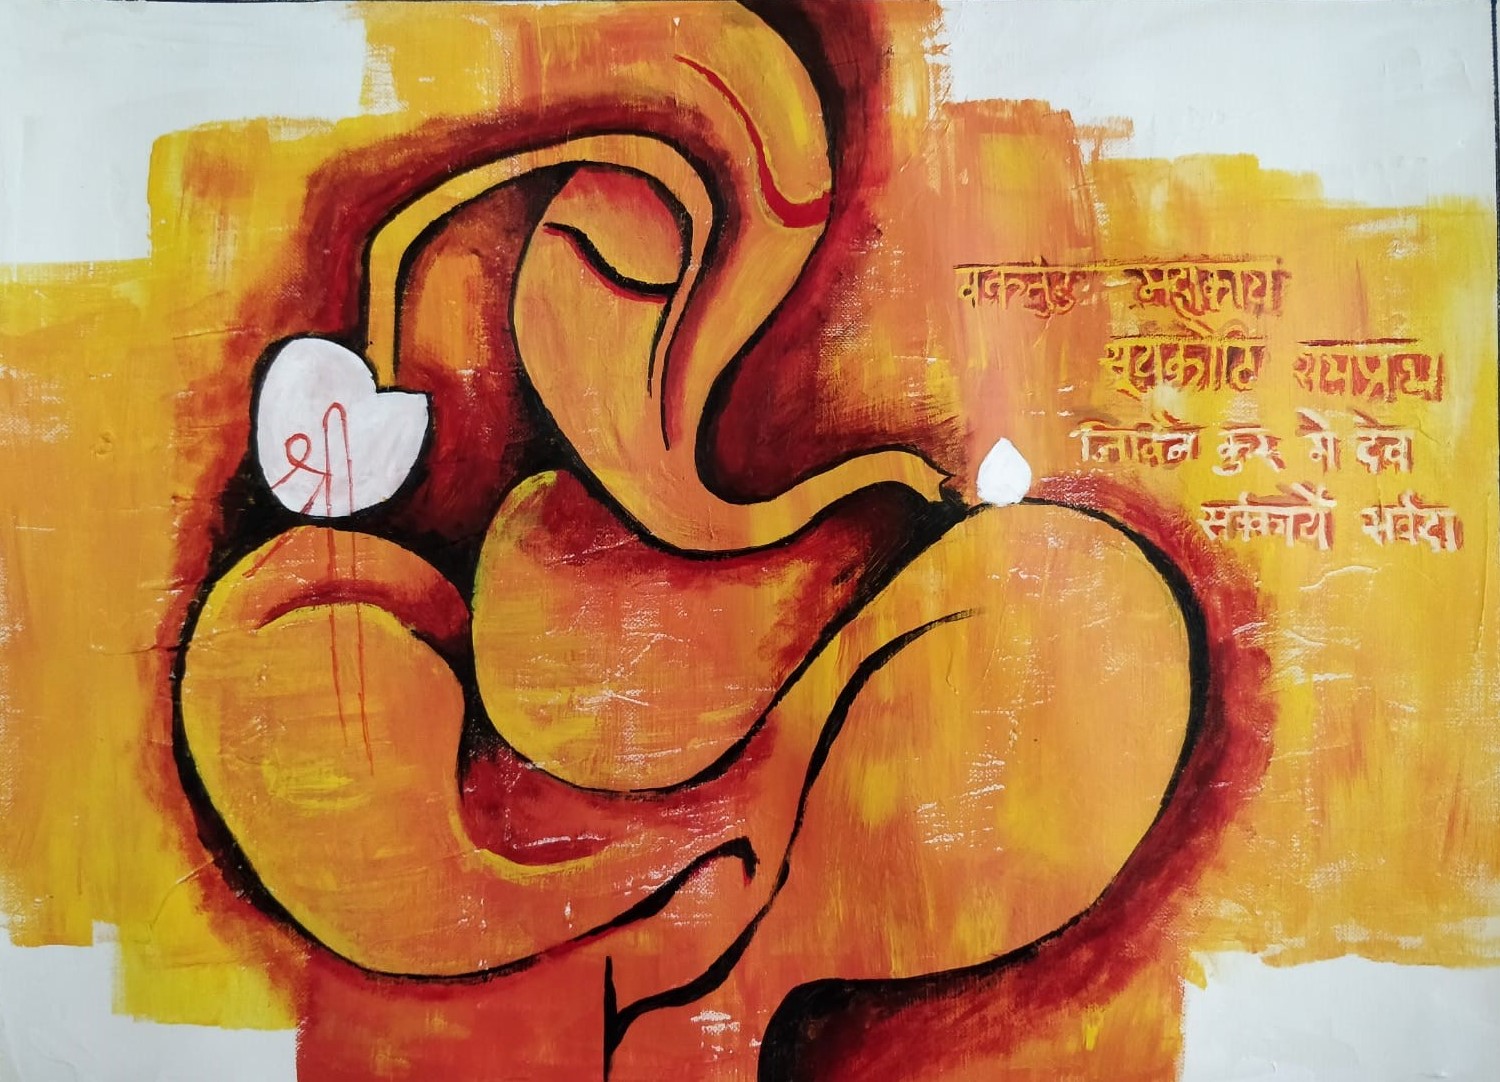 श्री
वक्रतुंड महाकाय
सूर्यकोटि समप्रभ
निर्विघ्नं कुरु मे देव
सर्वकार्येषु सर्वदा